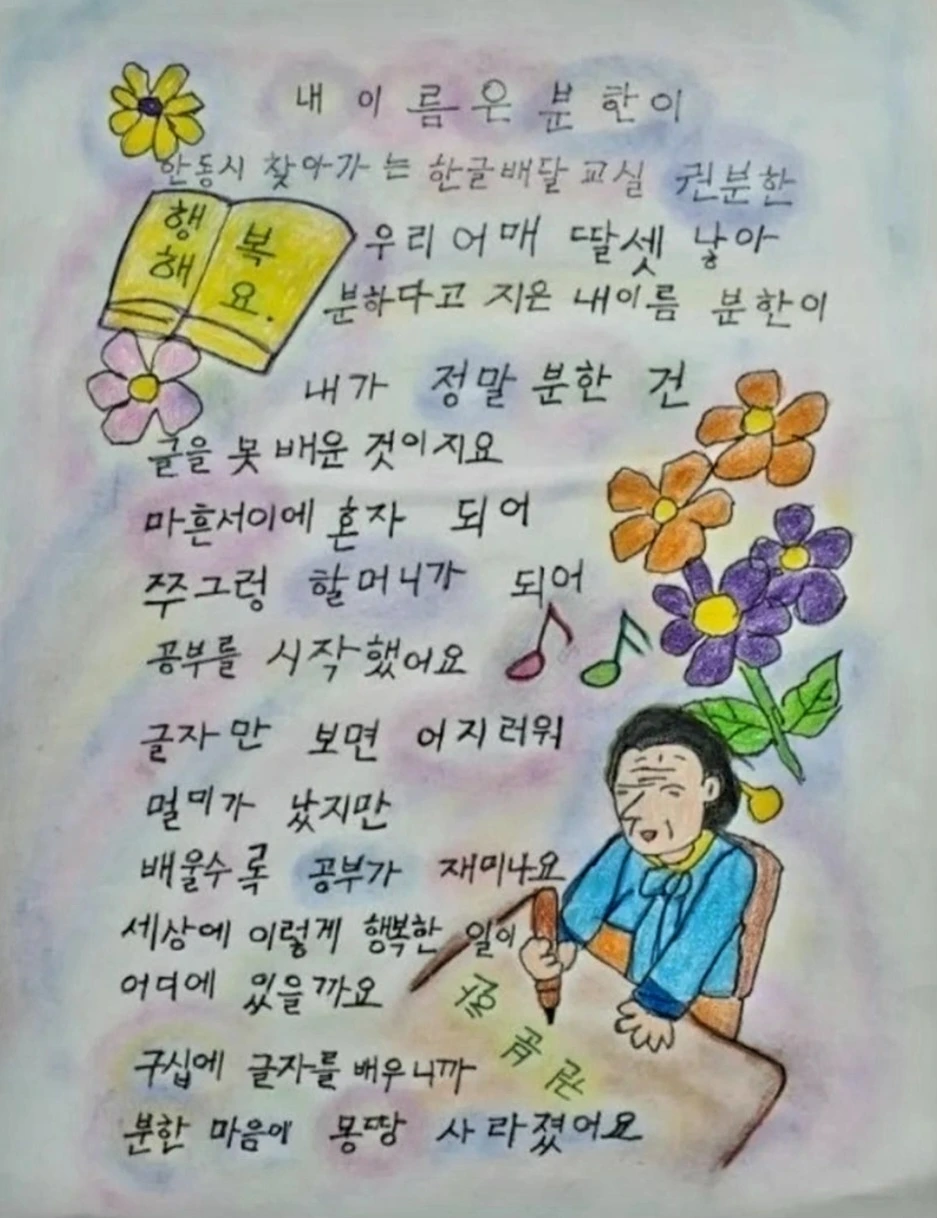 내 이름은 분한이
안동시 찾아가는 한글배달 교실 권분한
행복
해요.
우리 어매 딸셋 낳아
분하다고 지은 내이름 분한이
내가 정말 분한 건
글을 못 배운 것이지요
마흔서이에 혼자 되어
쭈그렁 할머니가 되어
공부를 시작했어요
글자만 보면 어지러워
멀미가 났지만
배울수록 공부가 재미나요
세상에 이렇게 행복한 일이
어디에 있을까요
구십에 글자를 배우니까
분한 마음이 몽땅 사라졌어요
권분한